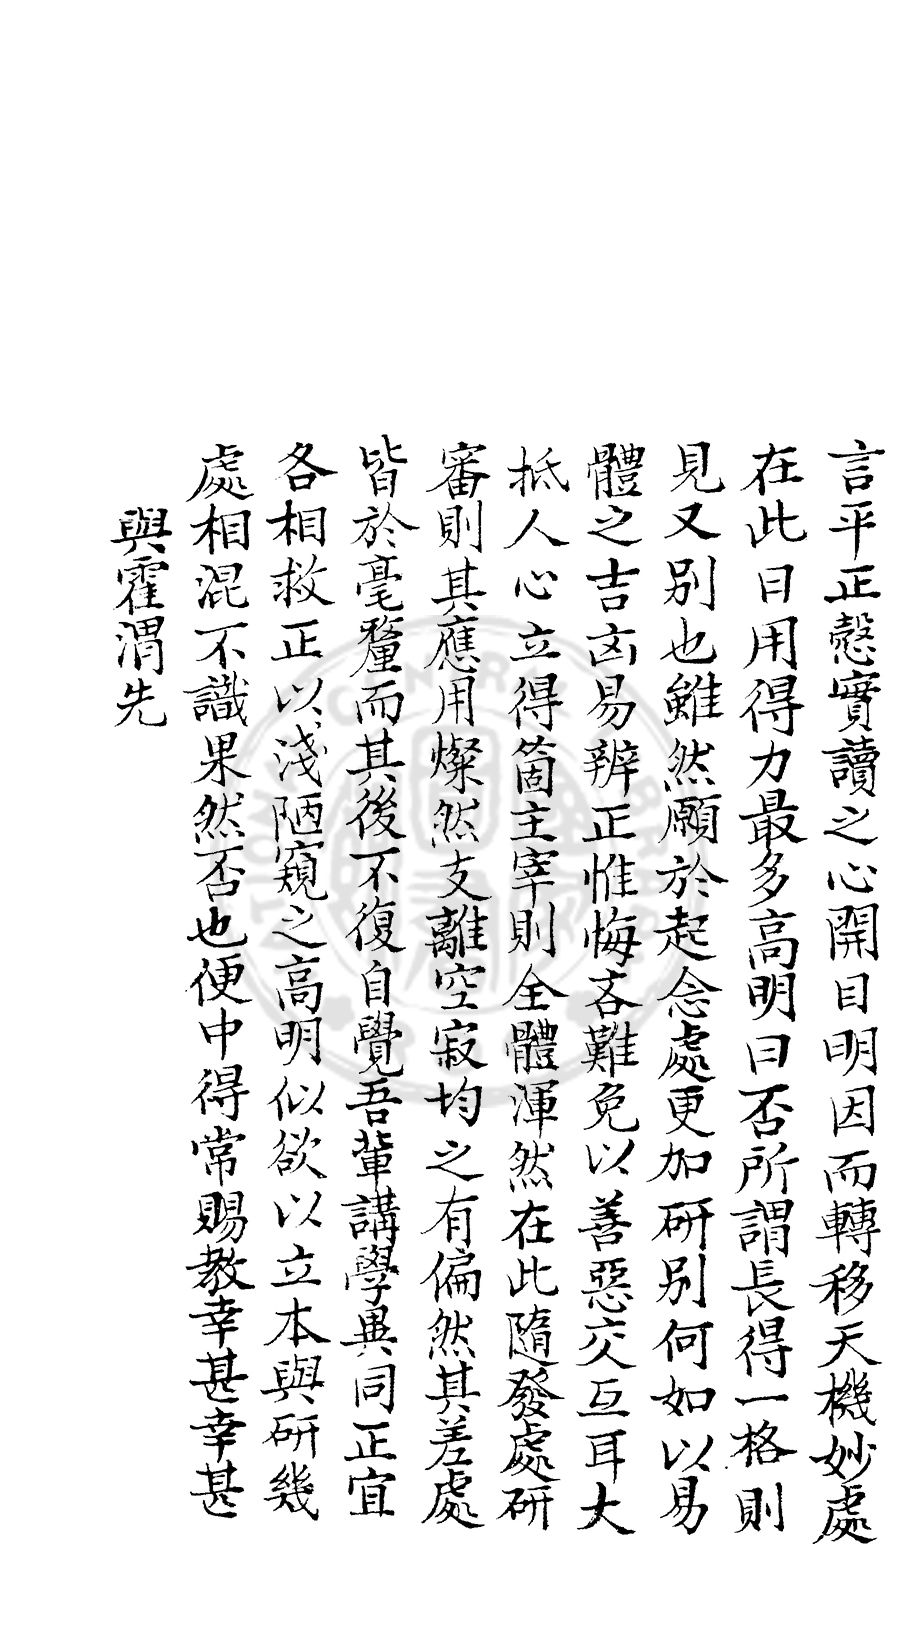 言平正慤實讀之心開目明因而轉移天機妙處
在此日用得力最多高明曰否所謂長得一格則
見又别也雖然願於起念處更加研别何如以易
體之吉凶易辨正惟悔吝難免以善惡交互耳大
抵人心立得箇主宰則全體渾然在此隨發處研
審則其應用燦然支離空寂均之有偏然其差處
皆於毫釐而其後不復自覺吾輩講學異同正宜
各相救正以淺陋窺之高明似欲以立本與研幾
處相混不識果然否也便中得常賜教幸甚幸甚
與霍渭先